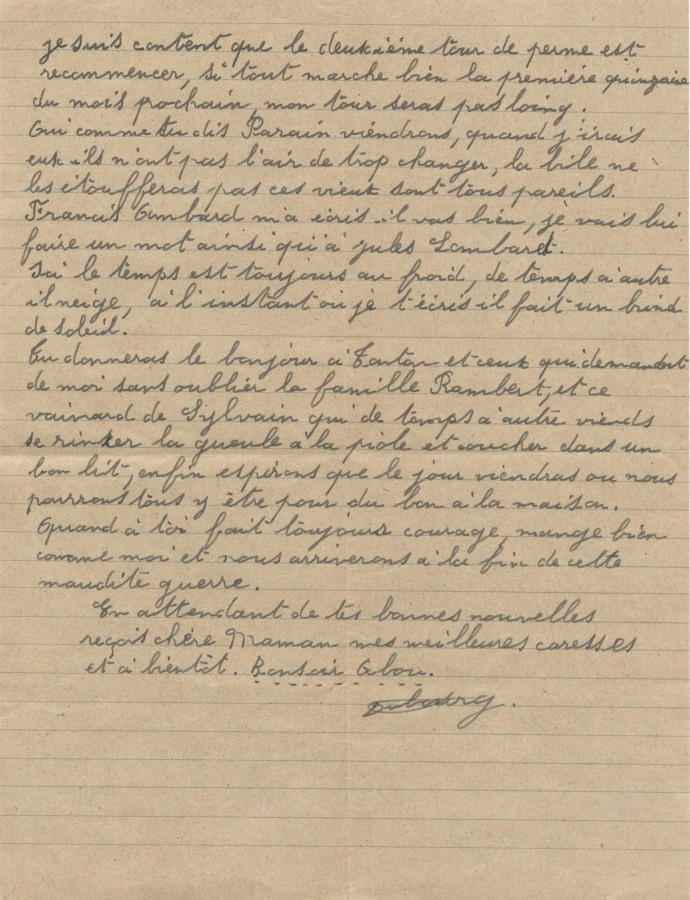 je suis content que le deuxième tour de perme est
recommencer, si tout marche bien la première quinzaine
du mois prochain, mon tour seras pas loing.
Oui comme tu dis Parain viendrons, quand j'irais
eux ils n'ont pas l'air de trop changer, la bile ne
les étoufferas pas ces vieux sont tous pareils.
Francis Ambard m'a écris il vas bien, je vais lui
faire un mot ainsi qu'à Jules Lombard.
Ici le temps est toujours au froid, de temps à autre
il neige, à l'instant où je t'écris il fait un brind
de soleil.
Tu donneras le bonjour à Tonton et ceux qui demandent
de moi sans oublier la famille Rambert, et ce
vainard de Sylvain qui de temps à autre viends
se rinser la gueule à la piole et coucher dans un
bon lit, enfin espérons que le jour viendras ou nous
pourrons tous y être pour du bon à la maison.
Quand à toi fait toujours courage, mange bien
comme moi et nous arriverons à la fin de cette
maudite guerre.
En attendant de tes bonnes nouvelles
reçois chère Maman mes meilleures caresses
et à bientôt. Bonsoir Abou.